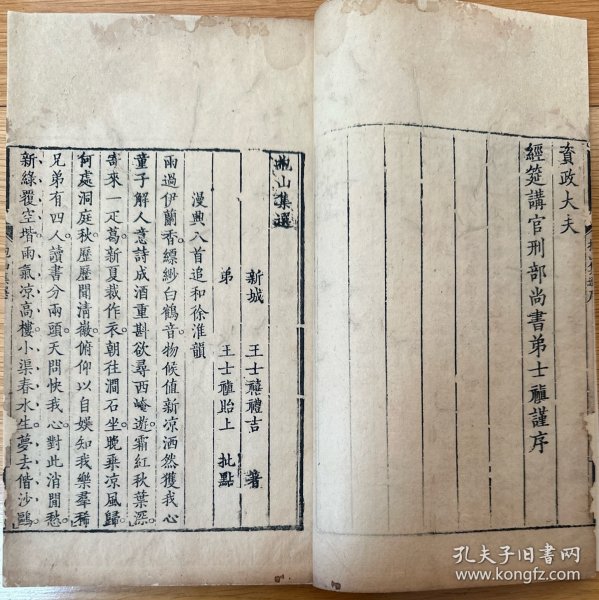 資政大夫
經筵講官刑部尚書弟士禛謹序
抱山集選
新城 王士禧禮吉 著
弟 王士禛貽上 批點
漫興八首追和徐淮韻
雨過伊蘭香縹緲白鶴音物候值新凉洒然獲我心
童子解人意詩成酒重斟欲尋西崦遊霜紅秋葉深
寄來一疋葛新夏裁作衣朝往澗石坐晚乘凉風歸
何處洞庭秋歷歷聞清徽俯仰以自娛知我樂羣稀
兄弟有四人讀書分兩頭天問快我心對此消閒愁
新綠覆空堦雨氣凉高樓小渠春水生夢去偕沙鷗
孔夫子旧书网
www.kongfz.com